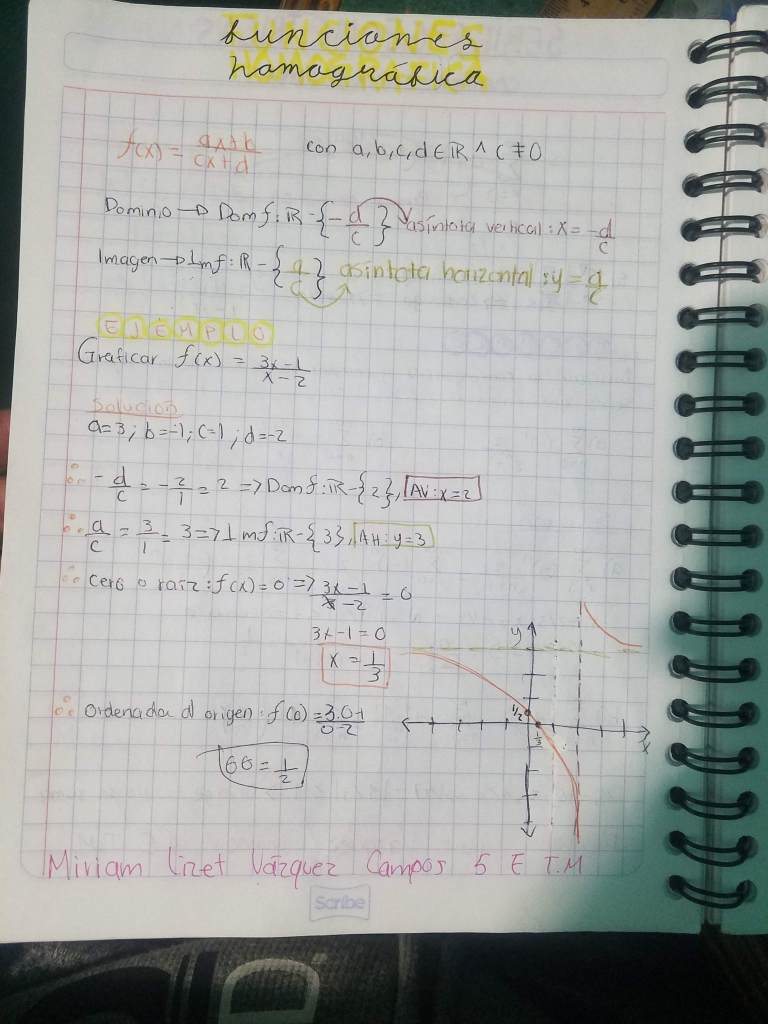 Funciones
homográfica
f(x) = ax+b / cx+d con a, b, c, d ∈ ℝ ∧ c ≠ 0
Dominio → Dom f: ℝ - {-d/c} asíntota vertical: x = -d/c
Imagen → Im f: ℝ - {a/c} asíntota horizontal: y = a/c
EJEMPLO
Graficar f(x) = 3x-1 / x-2
Solución
a=3; b=-1; c=1; d=-2
∴ -d/c = -2/1 = 2 => Dom f: ℝ-{2}, AV: x=2
∴ a/c = 3/1 = 3 => Im f: ℝ-{3}, AH: y=3
∴ cero o raíz: f(x)=0 => 3x-1 / x-2 = 0
3x-1=0
x = 1/3
∴ Ordenada al origen: f(0) = 3.0-1 / 0-2
= 1/2
y
1/2
1/3
x
Miriam Lizet Vázquez Campos 5 E T.M
Scribe